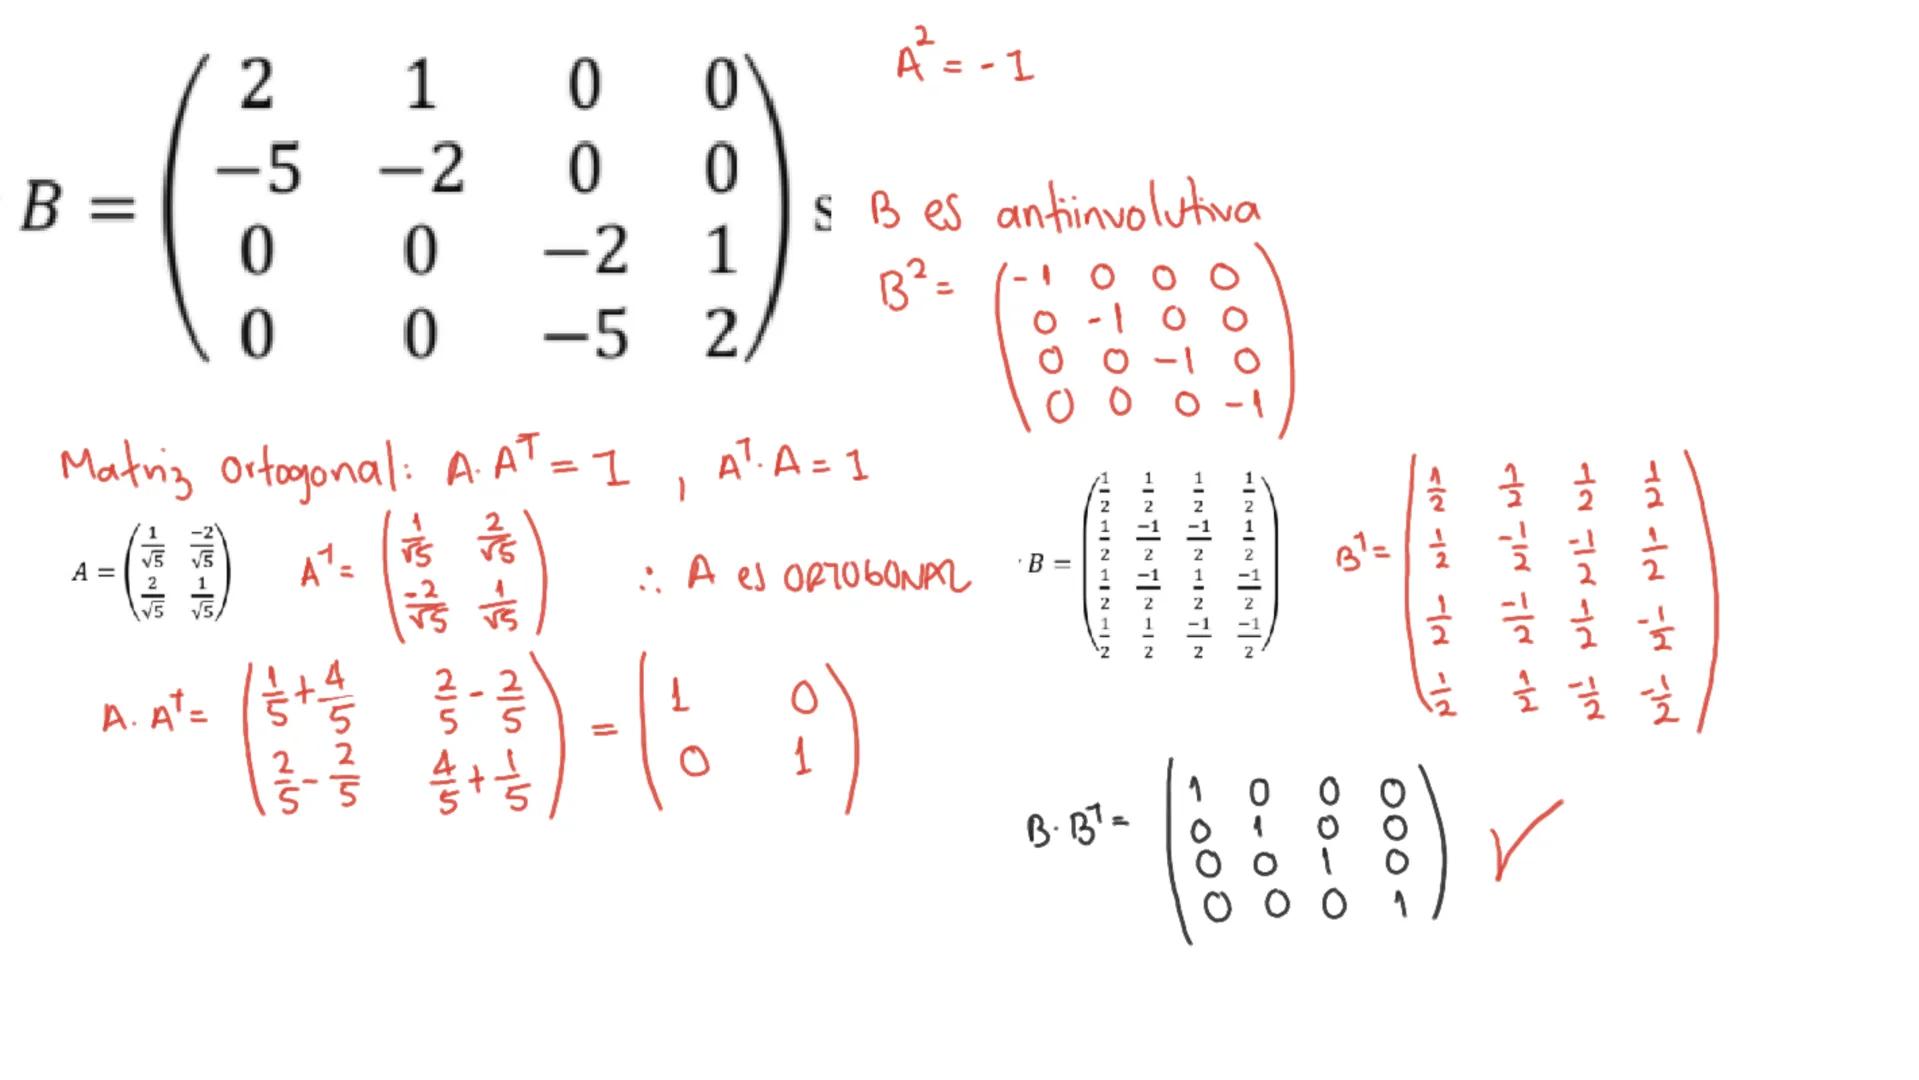 A² = -1
B = ( 2 1 0 0
-5 -2 0 0
0 0 -2 1
0 0 -5 2 ) s
B es antiinvolutiva
B² = ( -1 0 0 0
0 -1 0 0
0 0 -1 0
0 0 0 -1 )
Matriz ortogonal: A·Aᵀ = 1 , Aᵀ·A = 1
A = ( 1/√5 -2/√5
2/√5 1/√5 )
Aᵀ = ( 1/√5 2/√5
-2/√5 1/√5 )
∴ A es ORTOGONAL
A·Aᵀ = ( 1/5 + 4/5 2/5 - 2/5
2/5 - 2/5 4/5 + 1/5 ) = ( 1 0
0 1 )
B = ( 1/2 1/2 1/2 1/2
1/2 -1/2 -1/2 1/2
1/2 -1/2 1/2 -1/2
1/2 1/2 -1/2 -1/2 )
Bᵀ = ( 1/2 1/2 1/2 1/2
1/2 -1/2 -1/2 1/2
1/2 -1/2 1/2 -1/2
1/2 1/2 -1/2 -1/2 )
B·Bᵀ = ( 1 0 0 0
0 1 0 0
0 0 1 0
0 0 0 1 ) ✓